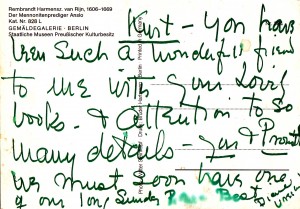 Rembrandt Harmensz. van Rijn, 1606-1669
Der Mennonitenprediger Anslo
Kat. Nr. 828 L
GEMÄLDEGALERIE · BERLIN
Staatliche Museen Preußischer Kulturbesitz
Kurt - you have
been such a wonderful friend
to me with your lovely
books - & attention to so
many details - you &
We must soon have one
of our long Sunday
Best